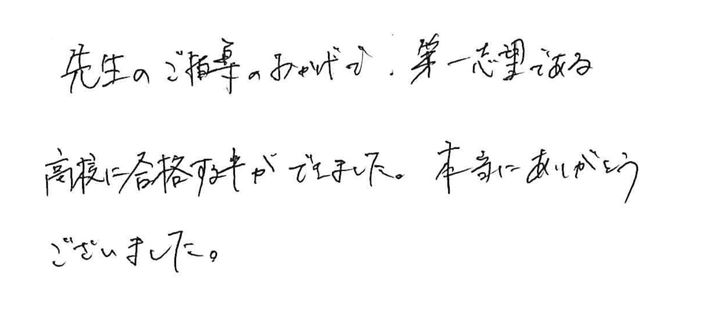 先生のご指導のおかげで、第一志望である
高校に合格する事ができました。本当にありがとう
ございました。